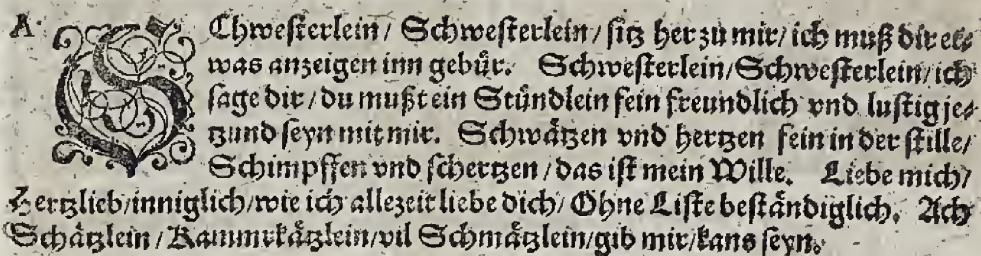 A SChwesterlein/ Schwesterlein/ sitz her zu mir/ ich muß dir et⸗
was anzeigen inn gebür. Schwesterlein/Schwesterlein/ich
sage dir/du must ein Stündlein fein freundlich vnd lustig je⸗
tzund seyn mit mir. Schwätzen vnd hertzen fein in der stille/
Schimpffen vnd schertzen/das ist mein Wille. Liebe mich/
Hertzlieb/inniglich/wie ich allezeit liebe dich/Ohne Liste beständiglich. Ach
Schätzlein/Rammkätzlein/vil Schmätzlein/gib mir/kans seyn.